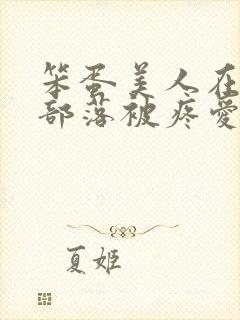 笨蛋美人在
部落被疼爱
夏姬